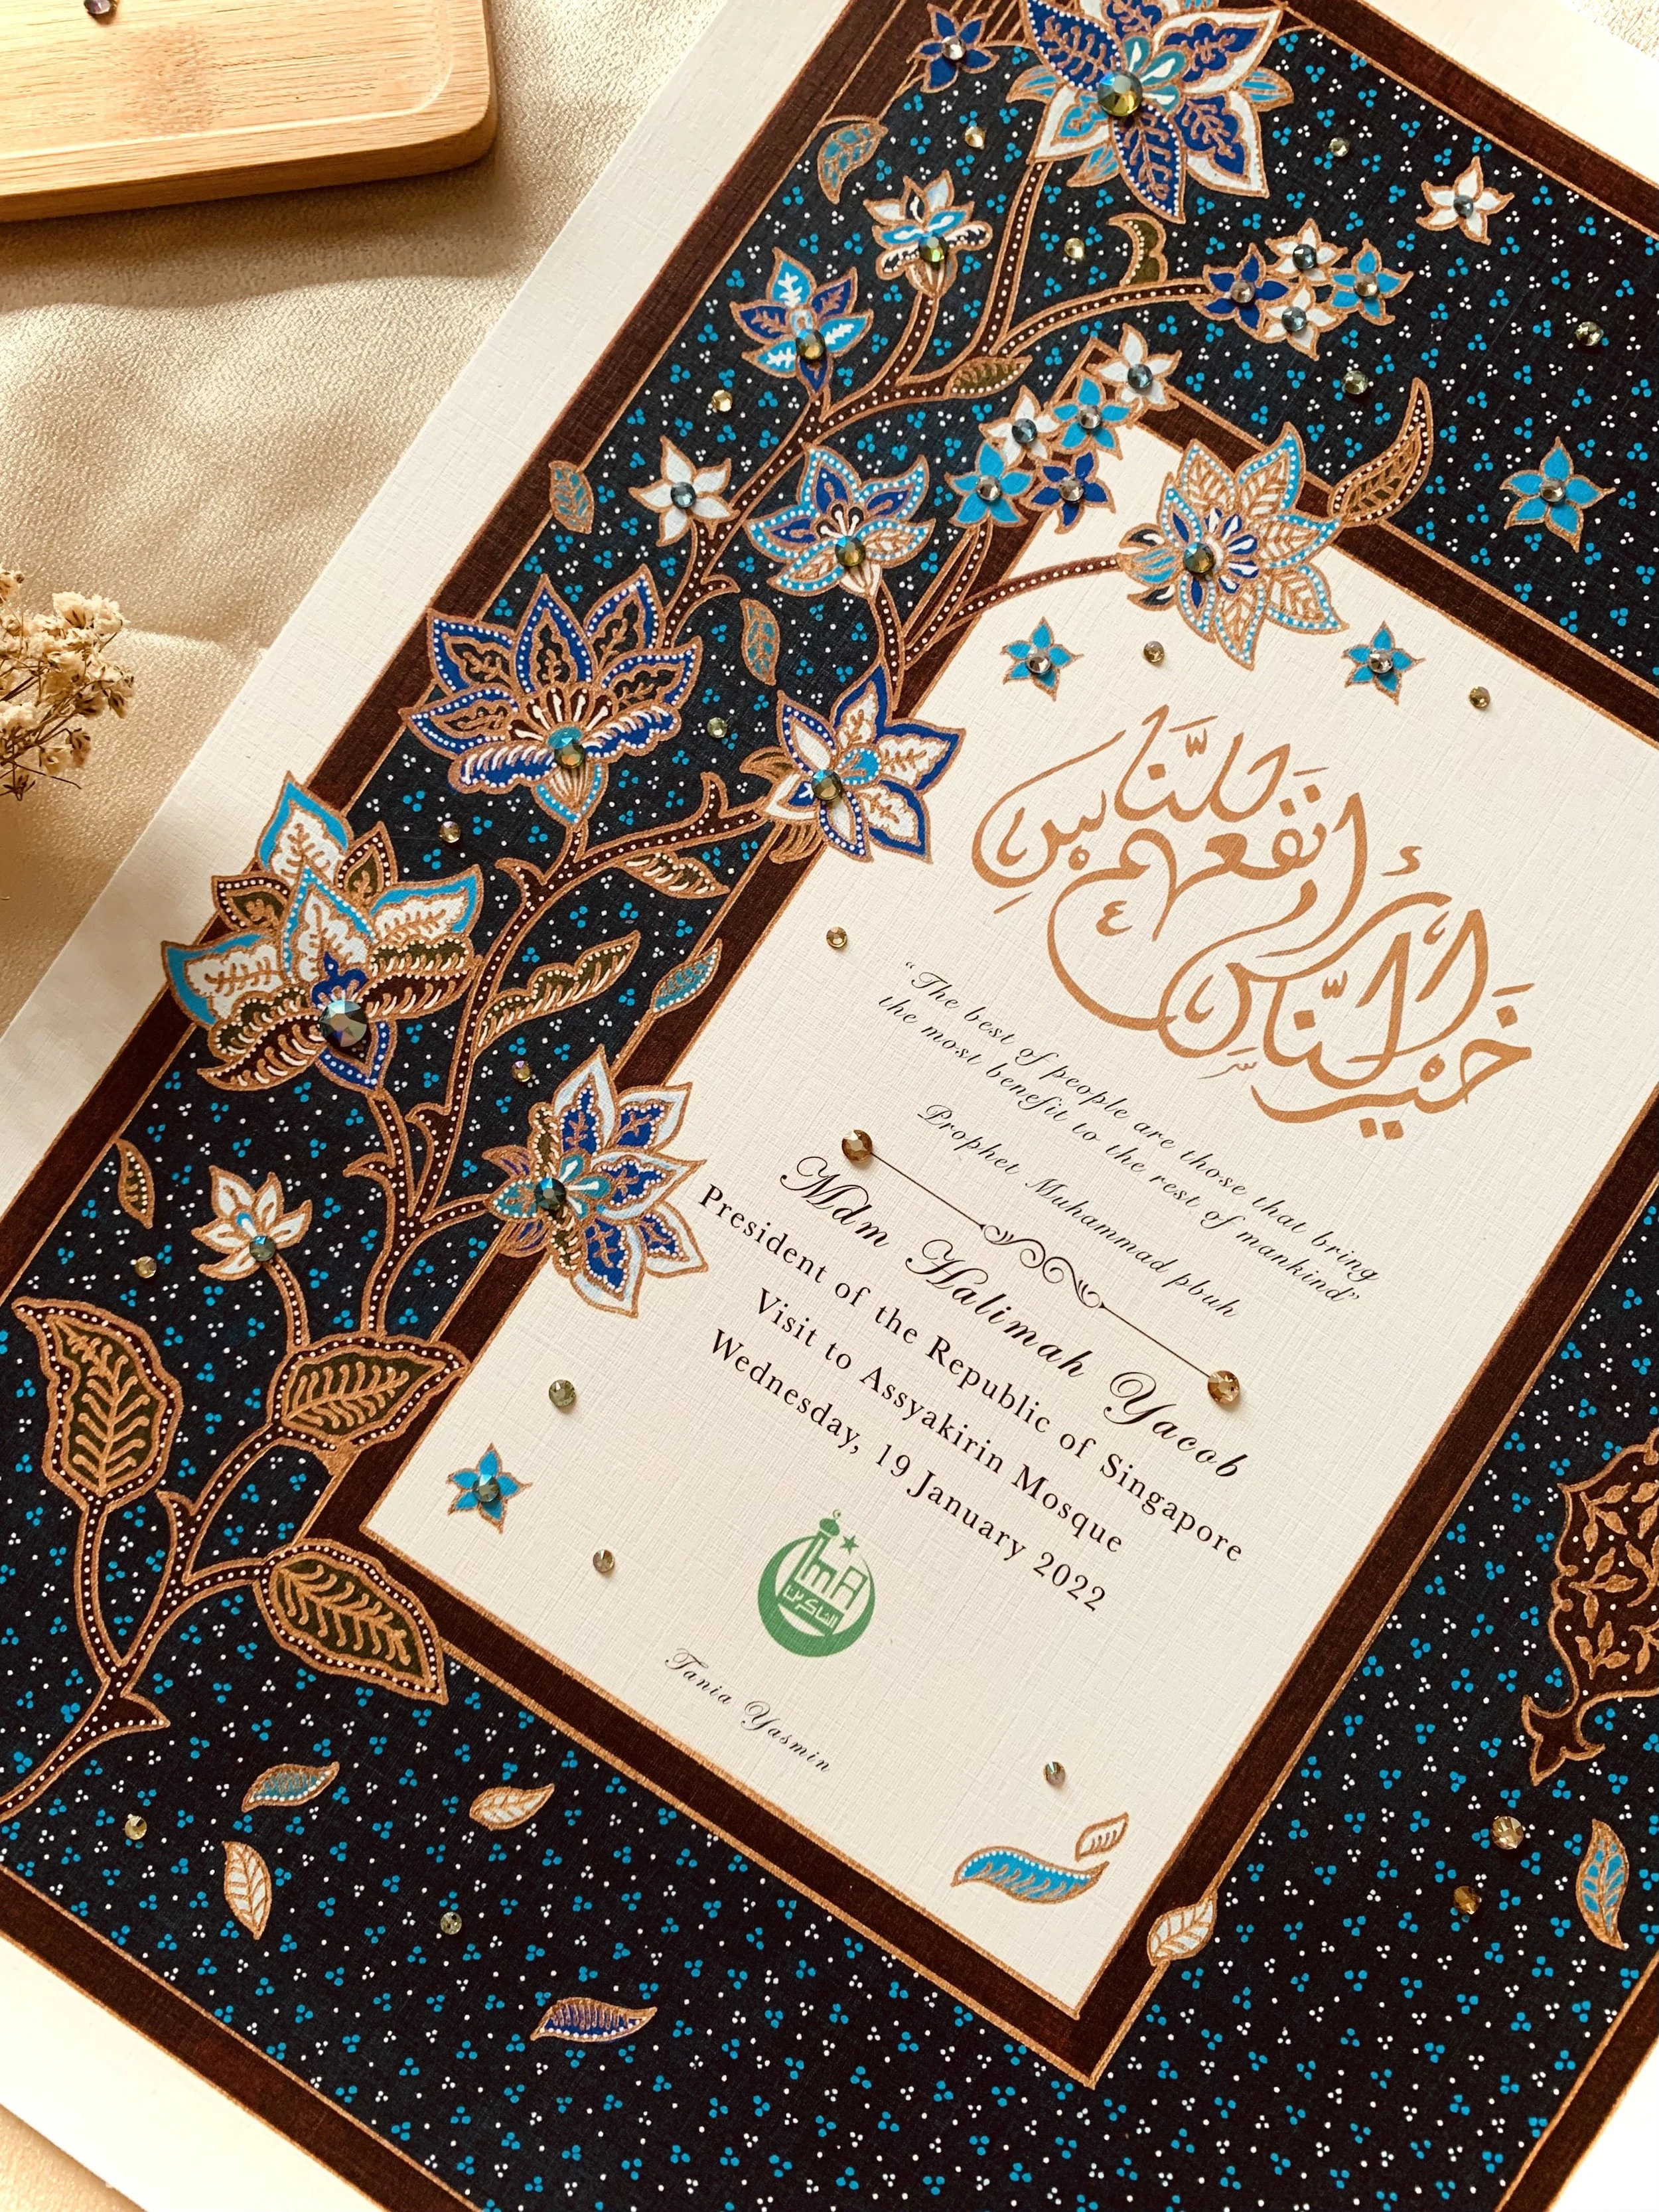 خَيْرُ النَّاسِ أَنْفَعُهُمْ لِلنَّاسِ
“The best of people are those that bring
the most benefit to the rest of mankind”
Prophet Muhammad pbuh
Mdm Halimah Yacob
President of the Republic of Singapore
Visit to Assyakirin Mosque
Wednesday, 19 January 2022
الشاكرين
Tania Yasmin